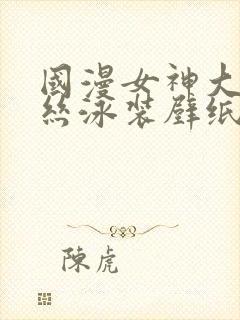 國漫女神大
絲泳裝壁纸
陳虎